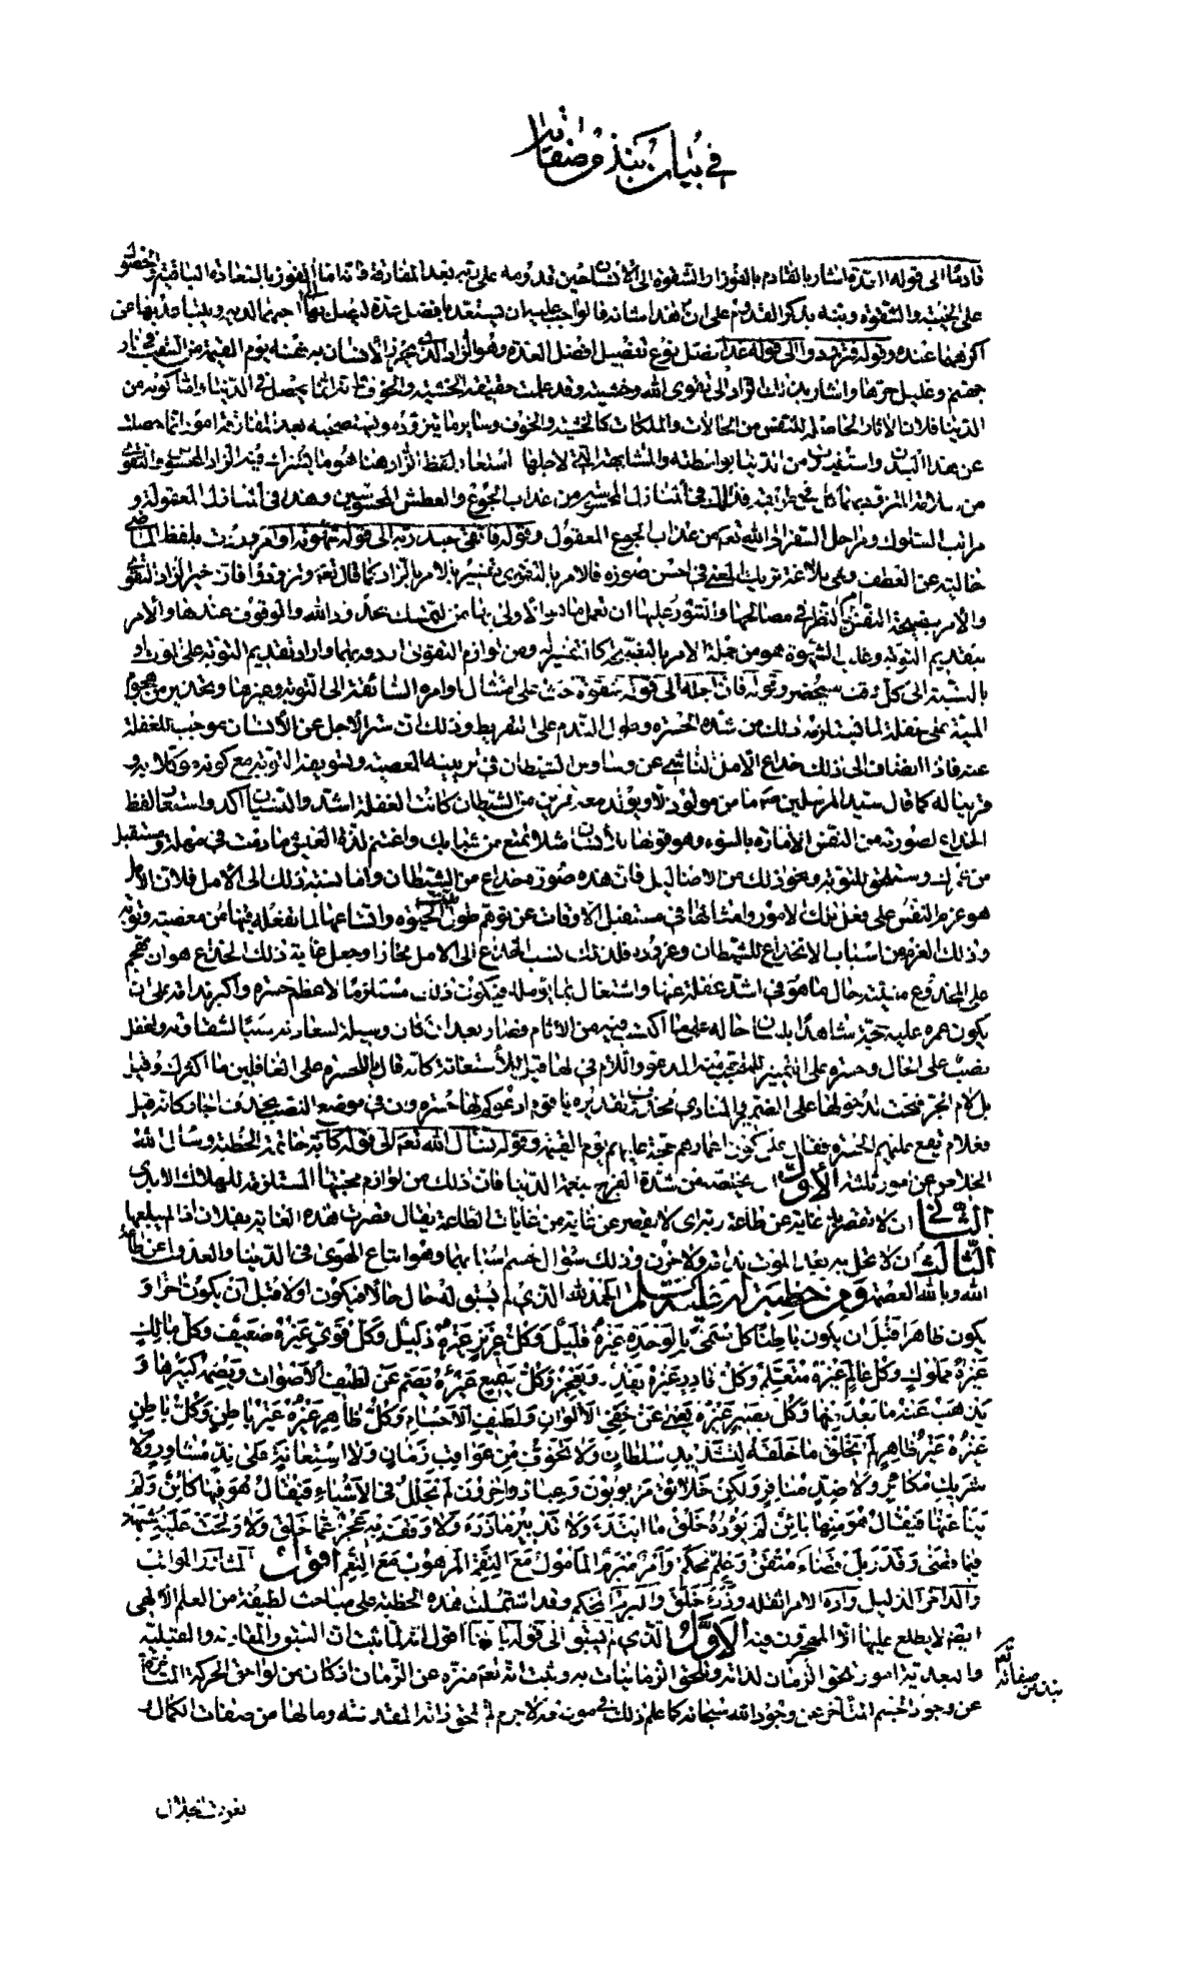 في بيان نبذ من صفاته
قادمًا الى قوله العدة اشار بالقادم بالفوز او الشقوة الى الانسان حين قدومه على ربه بعد المفارقة فانه اما الفوز بالسعادة الباقية او الحصول
على الخيبة والشقوة ونبه بذكر القدوم على ان من هذا شانه فالواجب عليه ان يستعد بافضل عدة ليصل بها الى احبهما لديه ويتباعد بها عن
اكرههما عنده وقوله فتزودوا الى قوله غدا فصل نوع تفصيل افضل العدة وهو الزاد الذي يحرز الانسان به نفسه يوم القيمة من السغب في نار
جهنم وغليل حرها واشار بذلك الزاد الى تقوى الله وخشيته وقد علمت حقيقة الخشية والخوف وانه انما يحصل في الدنيا واما كونه من
الدنيا فلان الاثار الحاصلة للنفس من الحالات والملكات كالخشية والخوف وساير ما يتزوده ويستصحبه بعد المفارقة امور انما حصلت
عن هذا البدن واستفيدت من الدنيا بواسطته والمشابهة التي لاجلها استعار لفظ الزاد هنا هو ما يشترك فيه الزاد المحسوس والتقوى
من سلامة المتزود بهما كل في طريقه فذلك في المنازل المحسوسة من عذاب الجوع والعطش المحسوسين وهذا في المنازل المعقولة و
مراتب السلوك ومراحل السفر الى الله تعم من عذاب الجوع المعقول وقوله فاتقى عبد ربه الى قوله شهوته اوامر وردت بلفظ الماضي
خالية عن العطف وهي بلاغة تريك المعنى في احسن صورة فالامر بالتقوى تفسير للامر بالزاد كما قال تعم وتزودوا فان خير الزاد التقوى
والامر بنصيحة النفس امر بالنظر في مصالحها والشور عليها ان تعمل ما هو الاولى بها من التمسك بحدود الله والوقوف عندها والامر
بتقديم التوبة وغلب الشهوة هو من جملة الامر بالتقوى كالتفسير له ومن لوازم التقوى اردوه بهما واراد تقديم التوبة على الموت او
بالنسبة الى كل وقت سيحضر وقوله فان اجله الى قوله شقوة حث على امتثال اوامره السابقة الى التوبة وغيرها وتحذير من هجوم
المنية على غفلة لما يستلزمه ذلك من شدة الحسرة وطول الندم على التفريط وذلك ان ستر الاجل عن الانسان موجب للغفلة
عنه فاذا انضاف الى ذلك خداع الامل الناشي عن وساوس الشيطان في تزيينه المعصية وتسويفه التوبة مع كونه موكلا به و
قرينا له كما قال سيد المرسلين صم ما من مولود الا ويولد معه قرين من الشيطان كانت الغفلة اشد والنسيان اكد واستعار لفظ
الخداع لصورته من النفس الامارة بالسوء وهو قولها للانسان مثلا تمتع من شبابك واغتنم لذة العيش ما دمت في مهلة ومستقبل
من عمرك وستلحق للتوبة ونحو ذلك من الاضاليل فان هذه صورة خداع من الشيطان واما نسبة ذلك الى الامل فلان الامل
هو عزم النفس على فعل تلك الامور وامثالها في مستقبل الاوقات عن توهم طول مدة الحيوة واتساعها لما تفعله فيها من معصية وتوبة
وذلك العزم من اسباب الانخداع للشيطان وغروره فلذلك نسب الخداع الى الامل مجازا وجعل غاية ذلك الخداع هو ان تهجم
على المخدوع منيته حال ما هو في اشد غفلة عنها واشتغال بما يوصله فيكون ذلك مستلزمًا لاعظم حسرة واكبر ندامة على ان
يكون عمره عليه حجة شاهدًا بلسان حاله على ما اكتسب فيه من الاثام وصار بعد ان كان وسيلة لسعادته سببًا لشقاوته والعقل
نصب على الحال وحسرة على التمييز للمتعجب منه المدعو واللام في لها قيل للاستغاثة كانه قال يا للحسرة على الغافلين ما اكثرك وقيل
بل لام الجر فتحت لدخولها على الضمير والمنادى محذوف تقديره يا قوم ادعوكم لها حسرة وان في موضع النصب بحذف الجار وكانه قيل
فعلام تقع عليهم الحسرة فقال على كون اعمارهم حجة عليهم يوم القيمة وقوله نسال الله تعم الى قوله كآبة خاتمة الخطبة وسال الله
الخلاص عن امور ثلثة الاول ان يخلصه من شدة الفرح بنعمة الدنيا فان ذلك من لوازم محبتها المستلزمة للهلاك الابدي
الثاني ان لا تقصر به غاية عن طاعة ربه اى لا يقصر عن غاية من غايات الطاعة يقال قصرت هذه الغاية بفلان اذا لم يبلغها
الثالث ان لا تحل به بعد الموت ندامة ولا حزن وذلك سؤال لحسم اسبابهما وهو اتباع الهوى في الدنيا والعدول عن طاعة
الله وبالله العصمة ومن خطبة له عليه السلم الحمد لله الذي لم يسبق له حال حالا فيكون اولا قبل ان يكون اخرا و
يكون ظاهرا قبل ان يكون باطنا كل مسمى بالوحدة غيره قليل وكل عزيز غيره ذليل وكل قوي غيره ضعيف وكل مالك
غيره مملوك وكل عالم غيره متعلم وكل قادر غيره يقدر ويعجز وكل سميع غيره يصم عن لطيف الاصوات ويصمه كبيرها و
يذهب عنه ما بعد منها وكل بصير غيره يعمى عن خفي الالوان ولطيف الاجسام وكل ظاهر غيره غير باطن وكل باطن
غيره غير ظاهر لم يخلق ما خلقه لتشديد سلطان ولا تخوف من عواقب زمان ولا استعانة على ند مثاور ولا
شريك مكاثر ولا ضد منافر ولكن خلائق مربوبون وعباد داخرون لم يحلل في الاشياء فيقال هو فيها كائن ولم
ينأ عنها فيقال هو منها بائن لم يؤده خلق ما ابتدء ولا تدبير ما ذرء ولا وقف به عجز عما خلق ولا ولجت عليه شبهة
فيما قضى وقدر بل قضاء متقن وعلم محكم وامر مبرم المأمول مع النقم المرهوب مع النعم اقول المثاور المواثب
والداخر الذليل واده الامر اثقله وذرء خلق والمبرم المحكم وقد اشتملت هذه الخطبة على مباحث لطيفة من العلم الالهي
ايضا لا يطلع عليها الا المتبحرون فيه الاول الذي لم يسبق الى قوله باطنا اقول انه لما ثبت ان السبق والمقارنة والقبلية
والبعدية امور تلحق الزمان لذاته وتلحق الزمانيات به وثبت انه تعم منزه عن الزمان اذ كان من لواحق الحركة المتاخرة
عن وجود الجسم المتأخر عن وجود الله سبحانه كما علم ذلك في موضعه لا جرم لم تلحق ذاته المقدسة وما لها من صفات الكمال
نبذ من صفاته تعم
نعوت الجلال